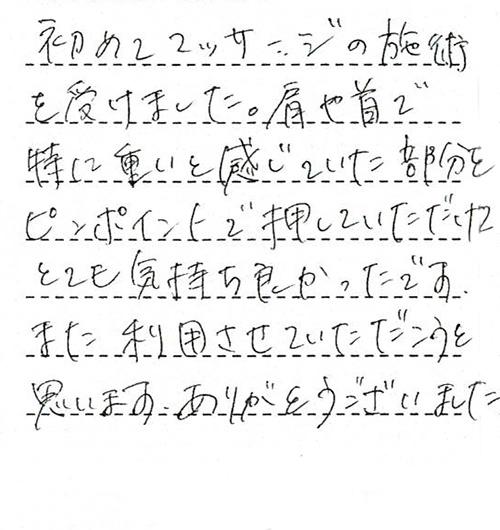 初めてマッサージの施術
を受けました。肩や首で
特に重いと感じていた部分を
ピンポイントで押していただけて
とても気持ち良かったです。
また利用させていただこうと
思います。ありがとうございました